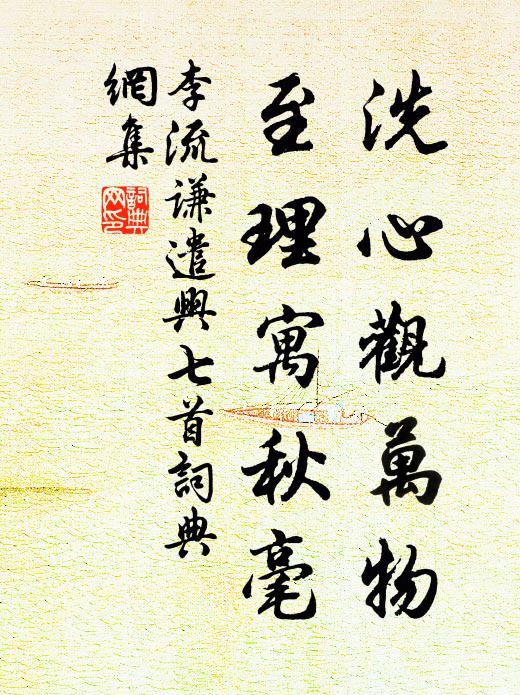 洗心觀萬物
至理寓秋毫
李流謙遣興七首詞典
網集
詞典
网印